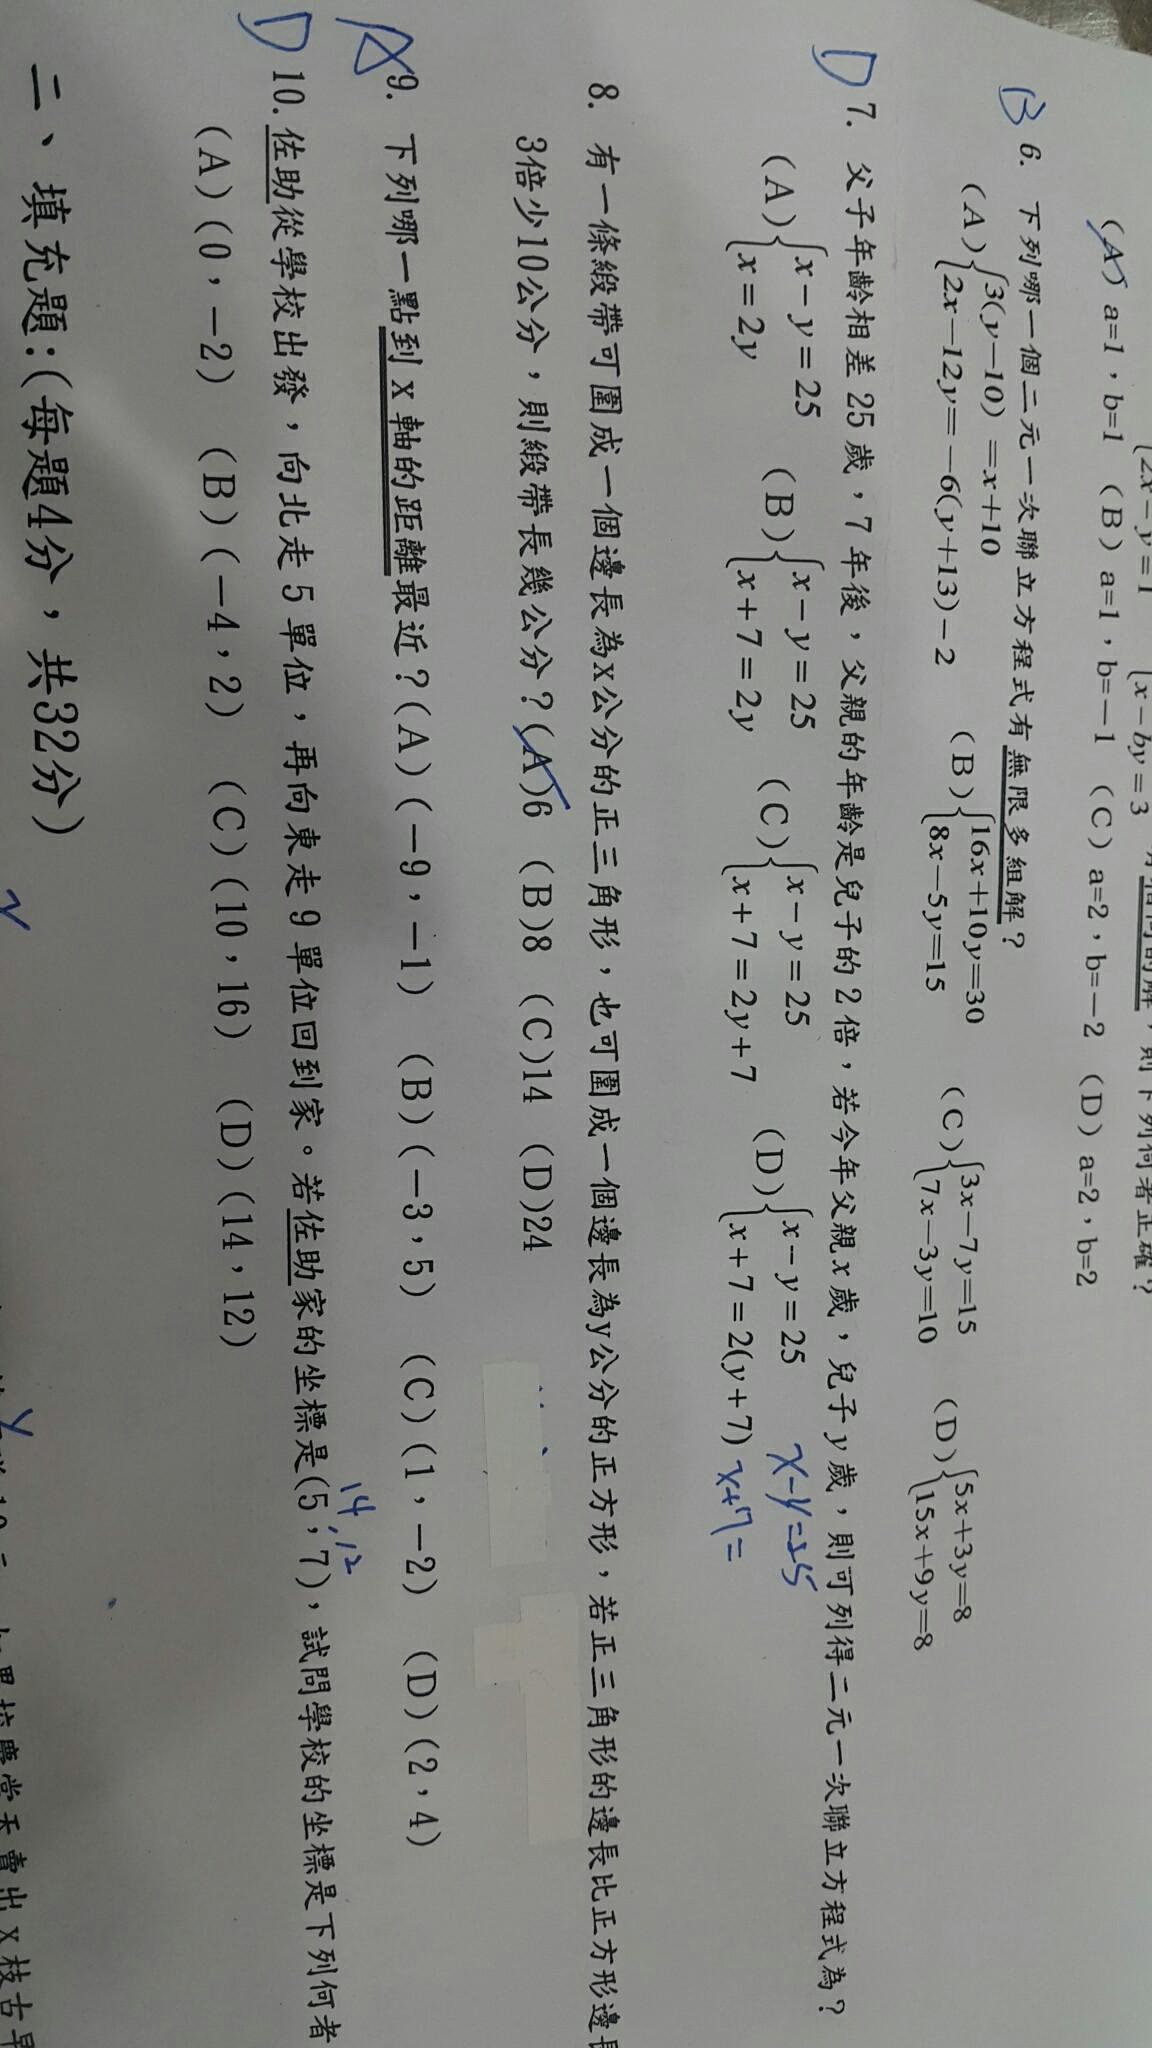 {2x－y＝1 {x－by＝3
(A) a=1，b=1 (B) a=1，b=－1 (C) a=2，b=－2 (D) a=2，b=2
B 6. 下列哪一個二元一次聯立方程式有無限多組解？
(A){3(y－10)＝x+10 (B){16x+10y=30 (C){3x－7y=15 (D){5x+3y=8
{2x－12y＝－6(y+13)－2 {8x－5y=15 {7x－3y=10 {15x+9y=8
D 7. 父子年齡相差 25 歲，7 年後，父親的年齡是兒子的 2 倍，若今年父親 x 歲，兒子 y 歲，則可列得二元一次聯立方程式為？
(A){x－y＝25 (B){x－y＝25 (C){x－y＝25 (D){x－y＝25 x-y=25
{x＝2y {x+7＝2y {x+7＝2y+7 {x+7＝2(y+7) x+7=
8. 有一條緞帶可圍成一個邊長為x公分的正三角形，也可圍成一個邊長為y公分的正方形，若正三角形的邊長比正方形邊長
3倍少10公分，則緞帶長幾公分？(A)6 (B)8 (C)14 (D)24
A 9. 下列哪一點到 x 軸的距離最近？(A)(－9，－1) (B)(－3，5) (C)(1，－2) (D)(2，4)
14,12
D 10. 佐助從學校出發，向北走 5 單位，再向東走 9 單位回到家。若佐助家的坐標是(5，7)，試問學校的坐標是下列何者
(A)(0，－2) (B)(－4，2) (C)(10，16) (D)(14，12)
二、填充題：(每題4分，共32分)